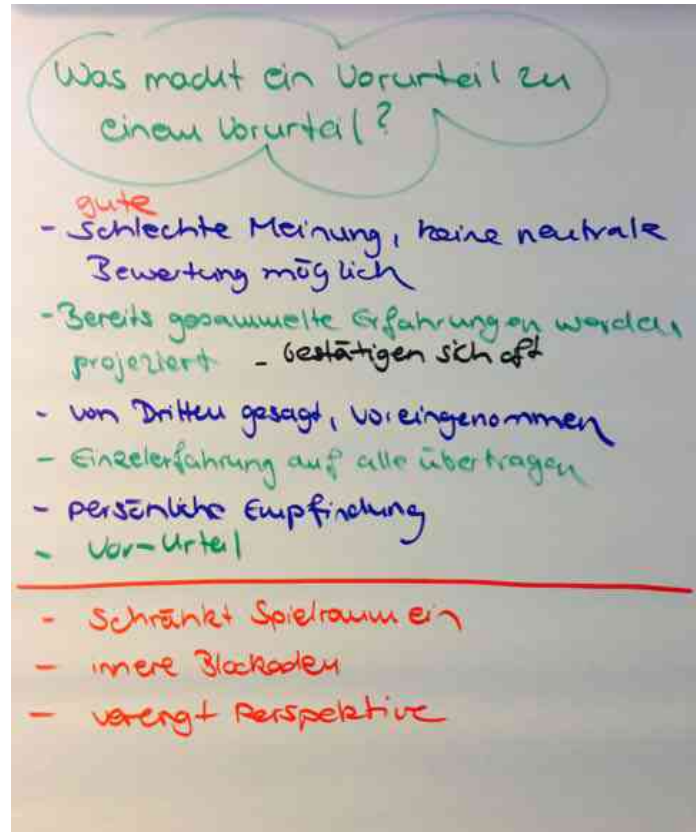 Was macht ein Vorurteil zu
einem Vorurteil?
gute
- Schlechte Meinung, keine neutrale
Bewertung möglich
- Bereits gesammelte Erfahrungen werden
projeziert - bestätigen sich oft
- von Dritten gesagt, voreingenommen
- Einzelerfahrung auf alle übertragen
- persönliche Empfindung
- Vor-Urteil
- Schränkt Spielraum ein
- innere Blockaden
- verengt Perspektive